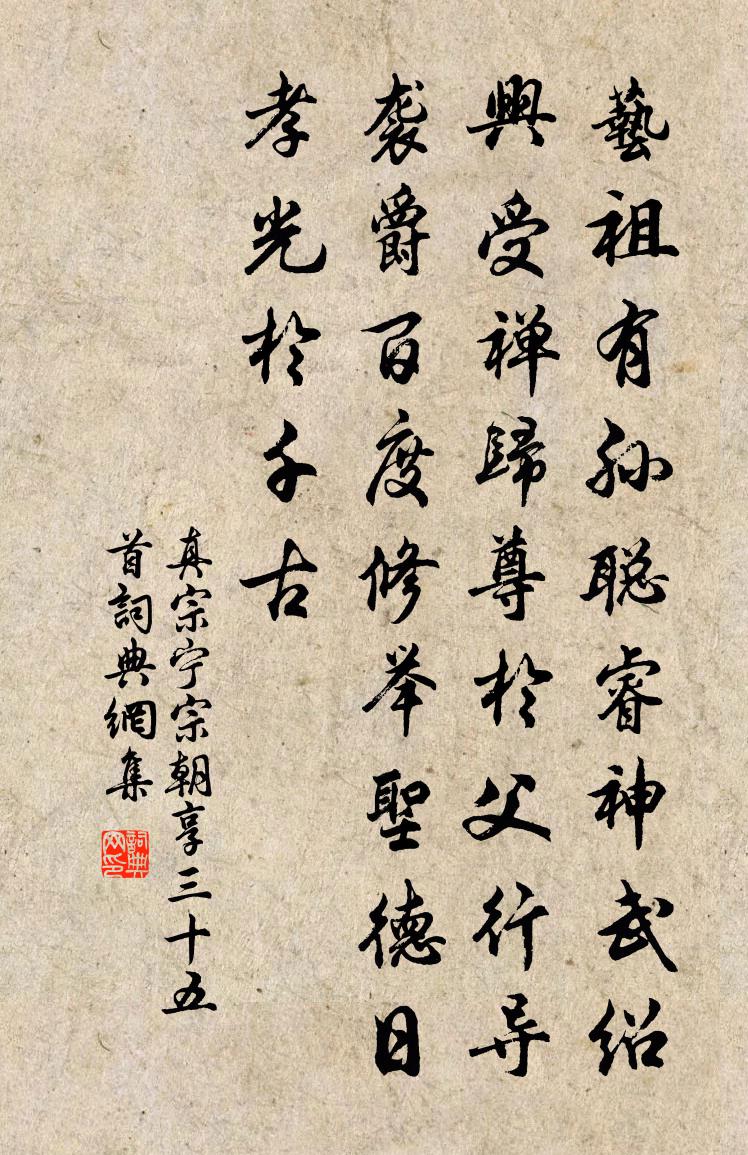 藝祖有孙聪睿神武绍
興受禅歸尊於父行导
袭爵百度修举聖德日
孝光於千古
真宗宁宗朝享三十五
首詞典網集
詞典网印